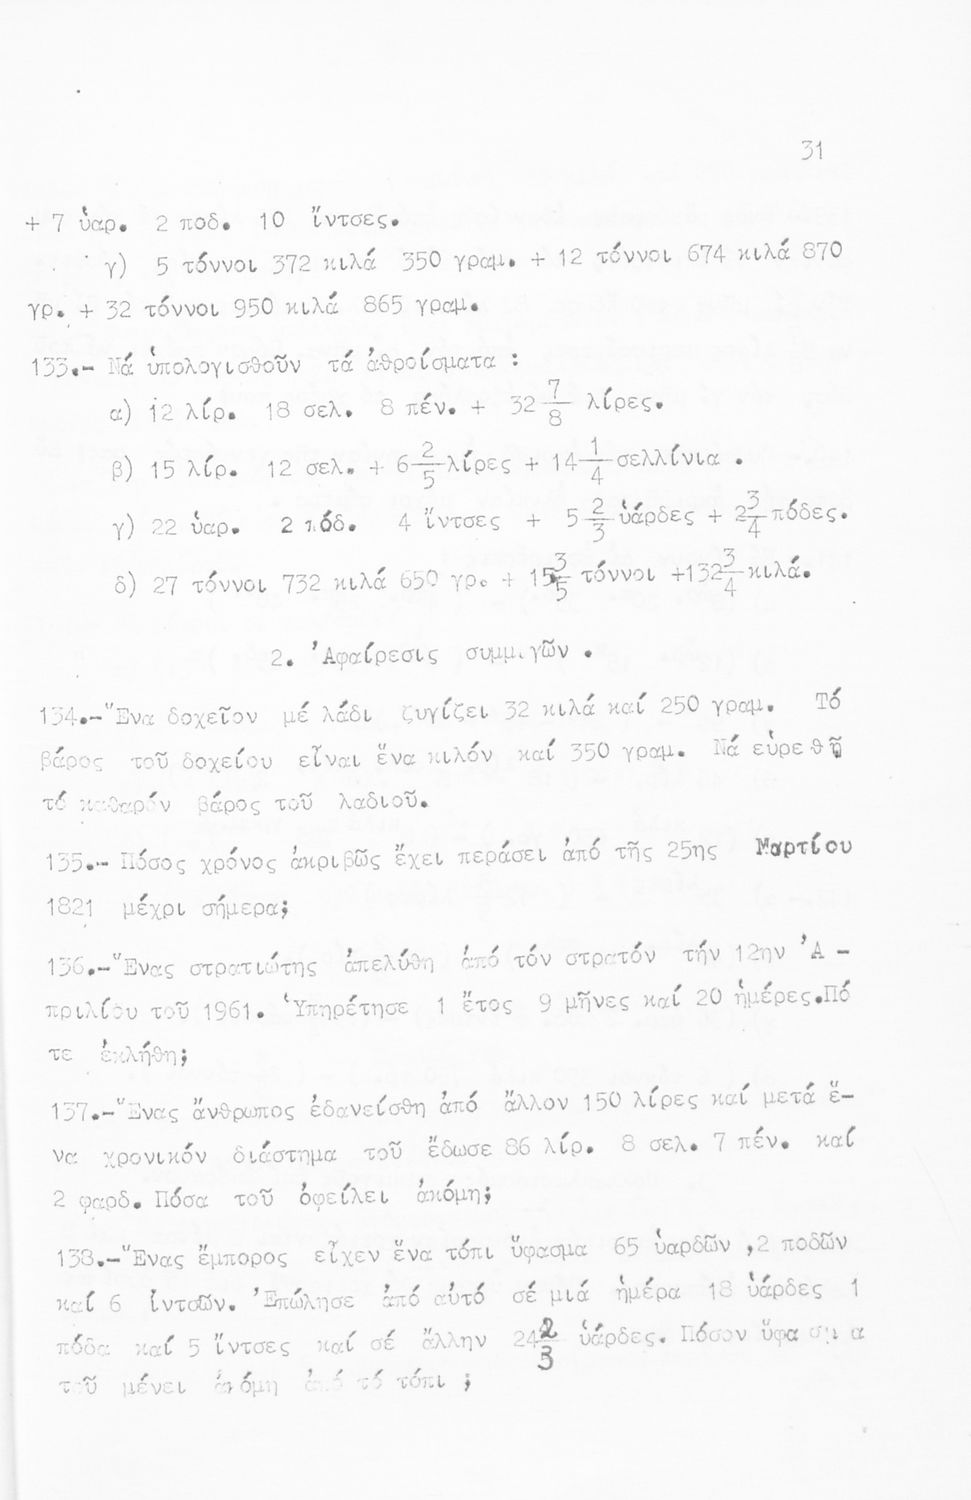 31
+ 7 ὑαρ. 2 ποδ. 10 ἴντσες.
γ) 5 τόννοι 372 κιλά 350 γραμ. + 12 τόννοι 674 κιλά 870
γρ. + 32 τόννοι 950 κιλά 865 γραμ.
133.- Νά ὑπολογισθοῦν τά ἀθροίσματα :
α) 12 λίρ. 18 σελ. 8 πέν. + 32 7/8 λίρες.
β) 15 λίρ. 12 σελ. + 6 2/5 λίρες + 14 1/4 σελλίνια .
γ) 22 ὑαρ. 2 πόδ. 4 ἴντσες + 5 2/3 ὑάρδες + 2 3/4 πόδες.
δ) 27 τόννοι 732 κιλά 650 γρ. + 15 3/5 τόννοι +132 3/4 κιλά.
2. Ἀφαίρεσις συμμιγῶν .
134.-Ἕνα δοχεῖον μέ λάδι ζυγίζει 32 κιλά καί 250 γραμ. Τό
βάρος τοῦ δοχείου εἶναι ἕνα κιλόν καί 350 γραμ. Νά εὑρεθῇ
τό καθαρόν βάρος τοῦ λαδιοῦ.
135.- Πόσος χρόνος ἀκριβῶς ἔχει περάσει ἀπό τῆς 25ης Μαρτίου
1821 μέχρι σήμερα;
136.-Ἕνας στρατιώτης ἀπελύθη ἀπό τόν στρατόν τήν 12ην Ἀ-
πριλίου τοῦ 1961. Ὑπηρέτησε 1 ἔτος 9 μῆνες καί 20 ἡμέρες.Πό
τε ἐκλήθη;
137.-Ἕνας ἄνθρωπος ἐδανείσθη ἀπό ἄλλον 150 λίρες καί μετά ἕ-
να χρονικόν διάστημα τοῦ ἔδωσε 86 λίρ. 8 σελ. 7 πέν. καί
2 φαρδ. Πόσα τοῦ ὀφείλει ἀκόμη;
138.-Ἕνας ἔμπορος εἶχεν ἕνα τόπι ὕφασμα 65 ὑαρδῶν ,2 ποδῶν
καί 6 ἰντσῶν. Ἐπώλησε ἀπό αὐτό σέ μιά ἡμέρα 18 ὑάρδες 1
πόδα καί 5 ἴντσες καί σέ ἄλλην 24 2/3 ὑάρδες. Πόσον ὕφασμα
τοῦ μένει ἀκόμη ἀπό τό τόπι ;